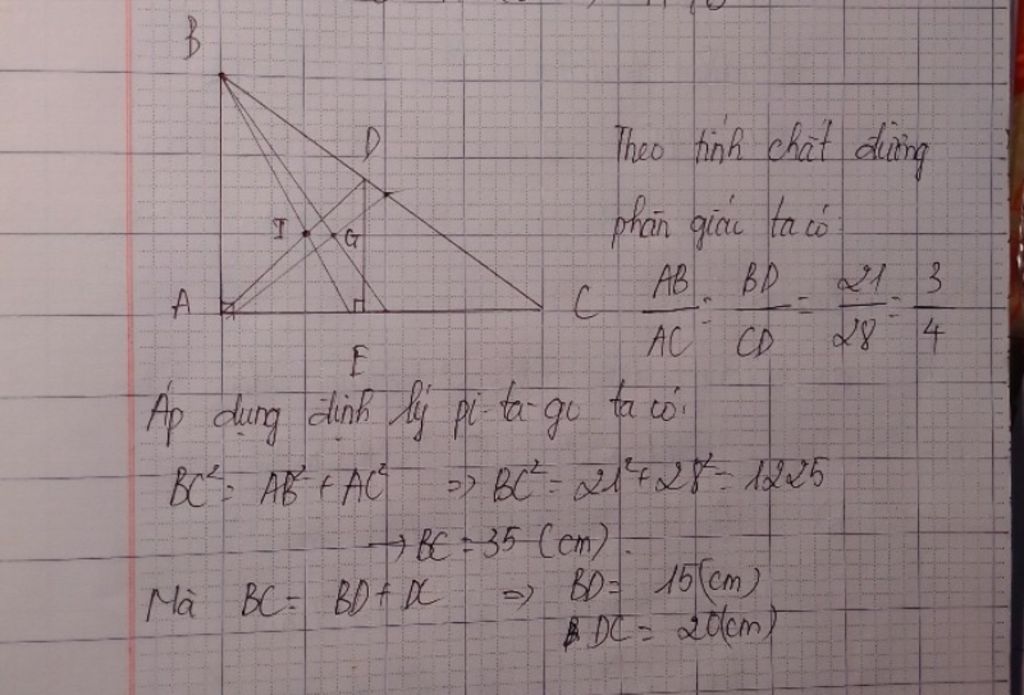 B
D
I
G
A
C
E
Theo tính chất đường
phân giác ta có:
AB/AC = BD/CD = 21/28 = 3/4
Áp dụng định lý pi-ta-go ta có:
BC² = AB² + AC² => BC² = 21² + 28² = 1225
→ BC = 35 (cm).
Mà BC = BD + DC => BD = 15 (cm)
DC = 20 (cm)